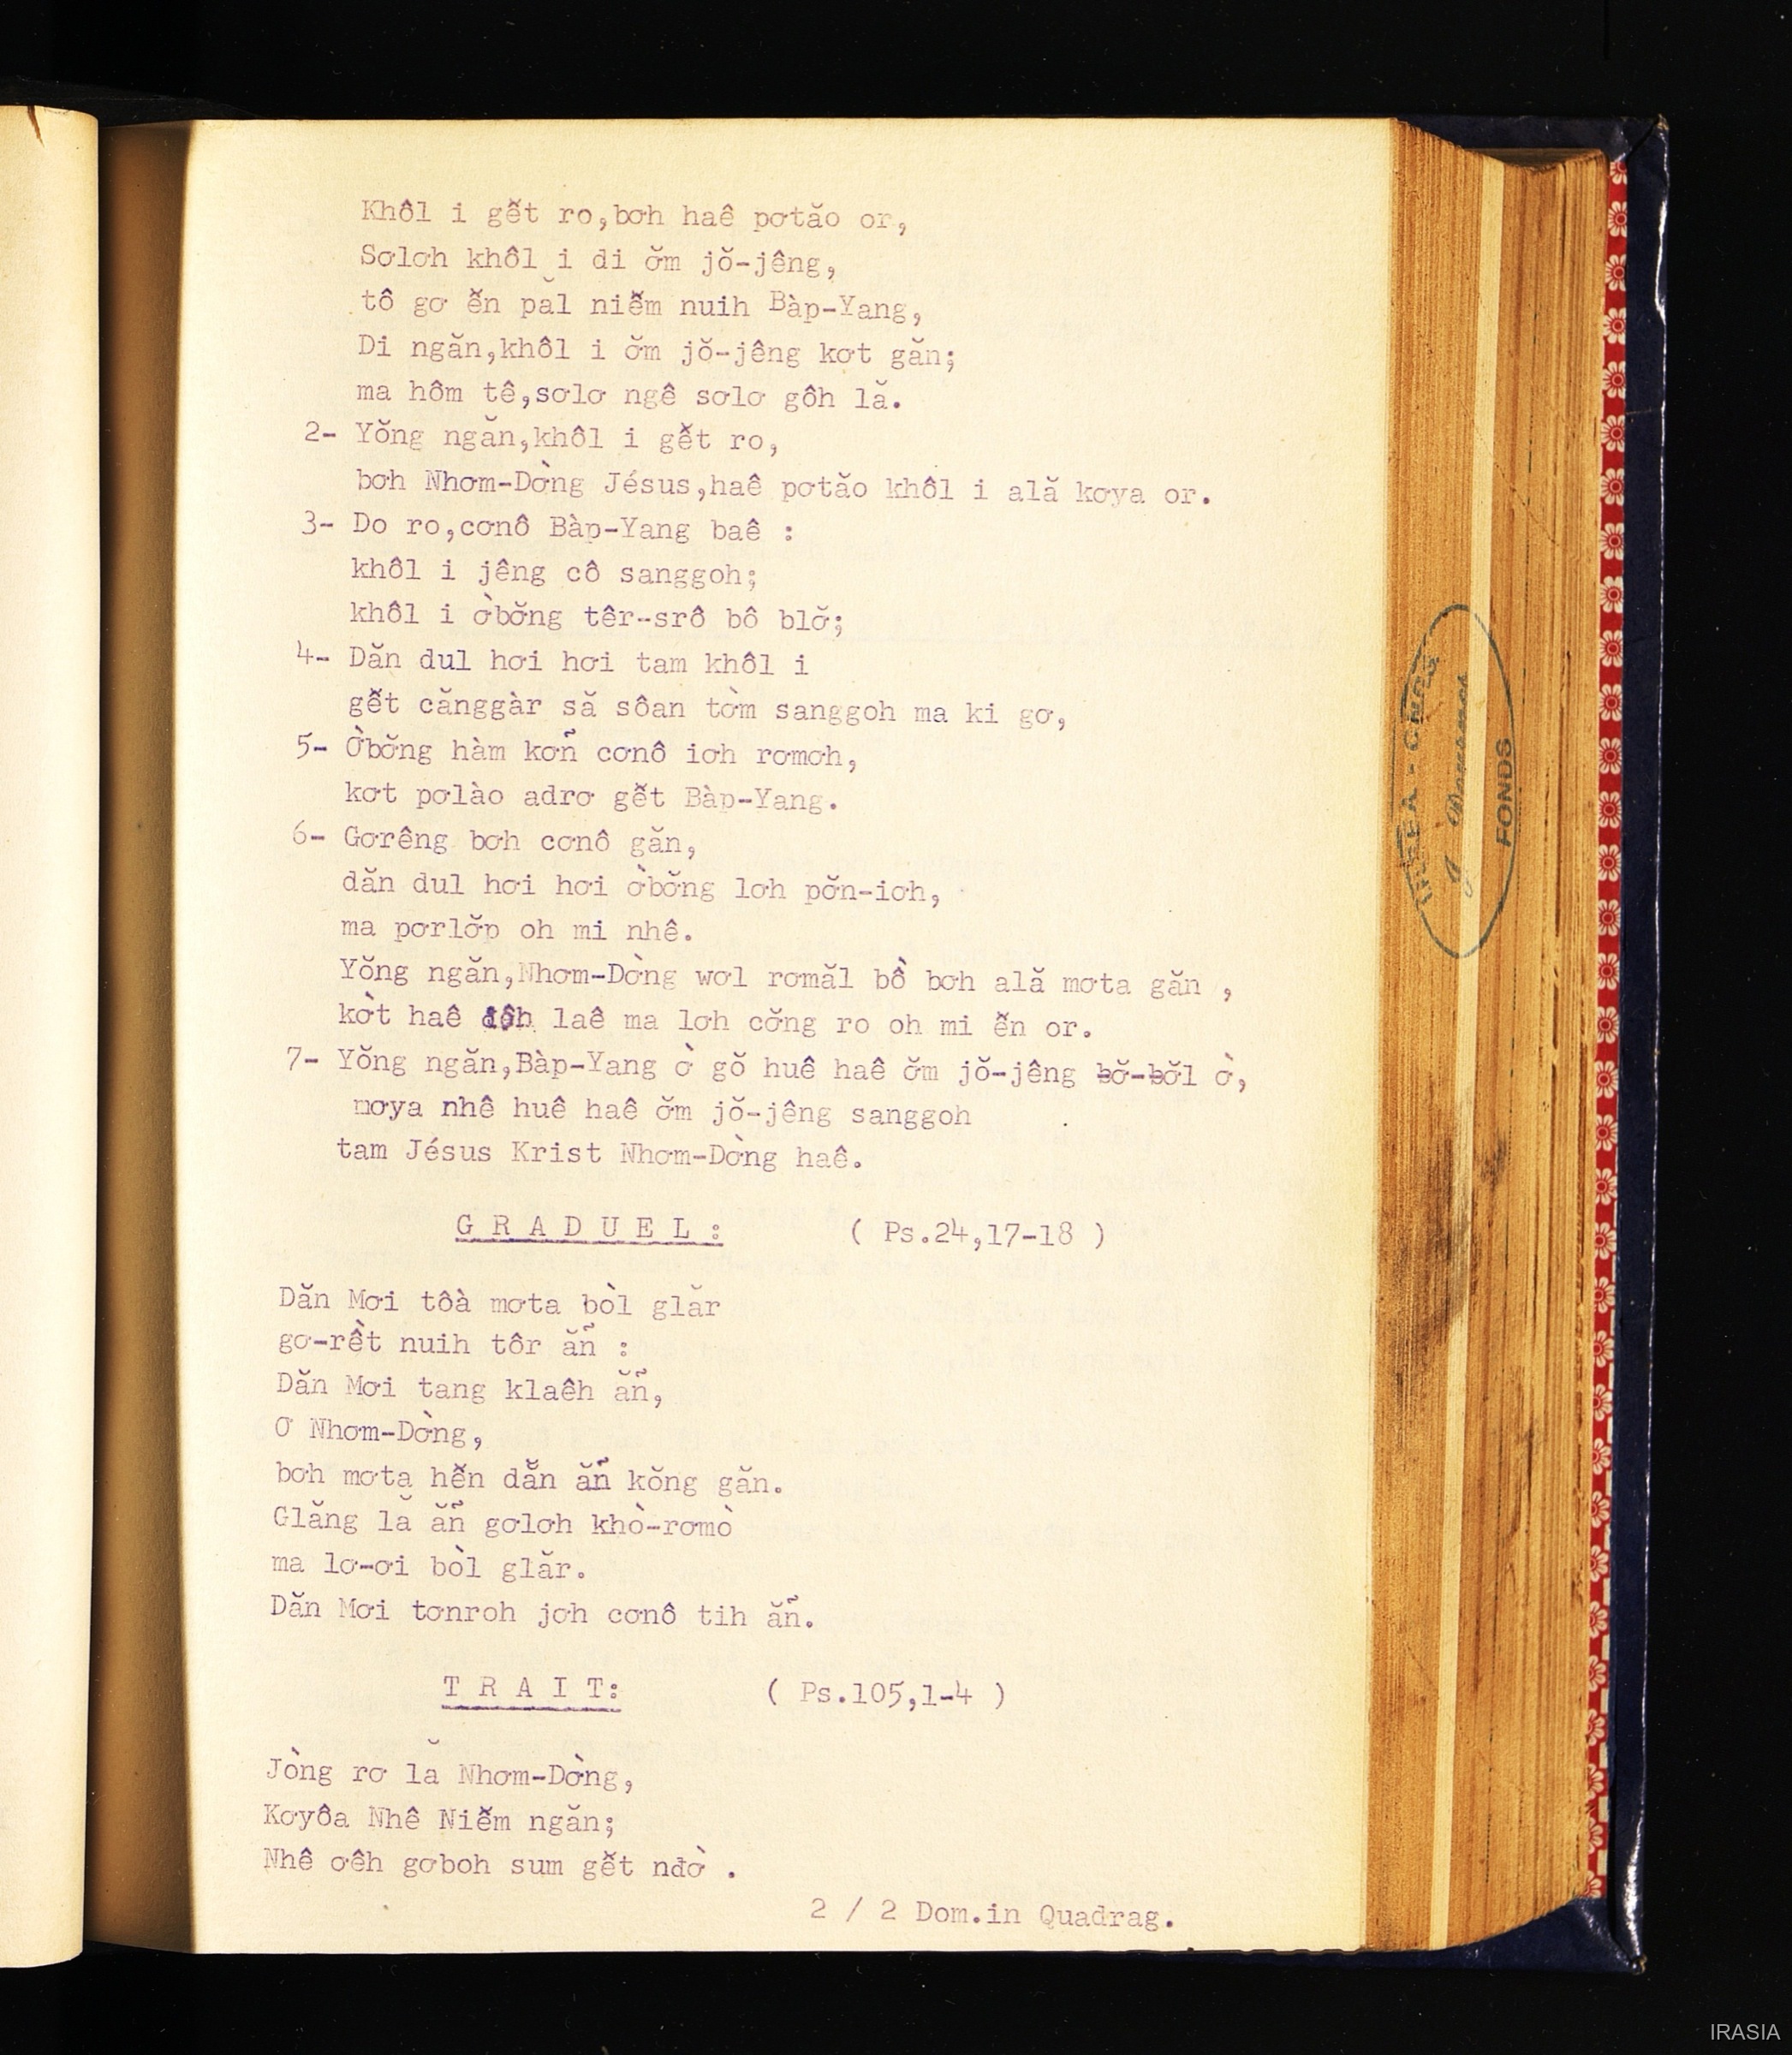 Khôl i gết ro,bơh haê pơtăo or,
Sơlơh khôl i di ơ̆m jŏ-jêng,
tô gơ ê̆n păl niê̆m nuih Bàp-Yang,
Di ngăn,khôl i ơ̆m jŏ-jêng kơt găn;
ma hôm tê,sơlơ ngê sơlơ gôh lă.
2- Yŏng ngăn,khôl i gê̆t ro,
bơh Nhơm-Dờng Jésus,haê pơtăo khôl i ală kơya or.
3- Do ro,cơnô Bàp-Yang baê :
khôl i jêng cô sanggoh;
khôl i ờbơ̆ng têr-srô bô blơ̆;
4- Dăn dul hơi hơi tam khôl i
gê̆t cănggàr să sôan tờm sanggoh ma ki gơ,
5- Ờbơ̆ng hàm kơñ cơnô iơh rơmơh,
kơt pơlào adrơ gê̆t Bàp-Yang.
6- Gơrêng bơh cơnô găn,
dăn dul hơi hơi ờbơ̆ng lơh pơ̆n-iơh,
ma pơrlơ̆p oh mi nhê.
Yŏng ngăn,Nhơm-Dờng wơl rơmăl bồ bơh ală mơta găn ,
kờt haê laê ma lơh cơ̆ng ro oh mi ê̆n or.
7- Yŏng ngăn,Bàp-Yang ờ gŏ huê haê ơ̆m jŏ-jêng ƀơ̆-ƀơ̆l ờ,
mơya nhê huê haê ơ̆m jŏ-jêng sanggoh
tam Jésus Krist Nhơm-Dờng haê.
G R A D U E L : ( Ps.24,17-18 )
Dăn Mơi tôà mơta bòl glăr
gơ-rềt nuih tôr ăñ :
Dăn Mơi tang klaêh ăñ,
Ơ Nhơm-Dờng,
bơh mơta hê̆n dẫn ăñ kŏng găn.
Glăng lă ăñ gơlơh khò-rơmò
ma lơ-ơi bòl glăr.
Dăn Mơi tơnroh jơh cơnô tih ăñ.
T R A I T: ( Ps.105,1-4 )
Jòng rơ lă Nhơm-Dờng,
Kơyôa Nhê Niê̆m ngăn;
Nhê ơêh gơboh sum gê̆t nđờ .
2 / 2 Dom.in Quadrag.
FONDS
IRASIA